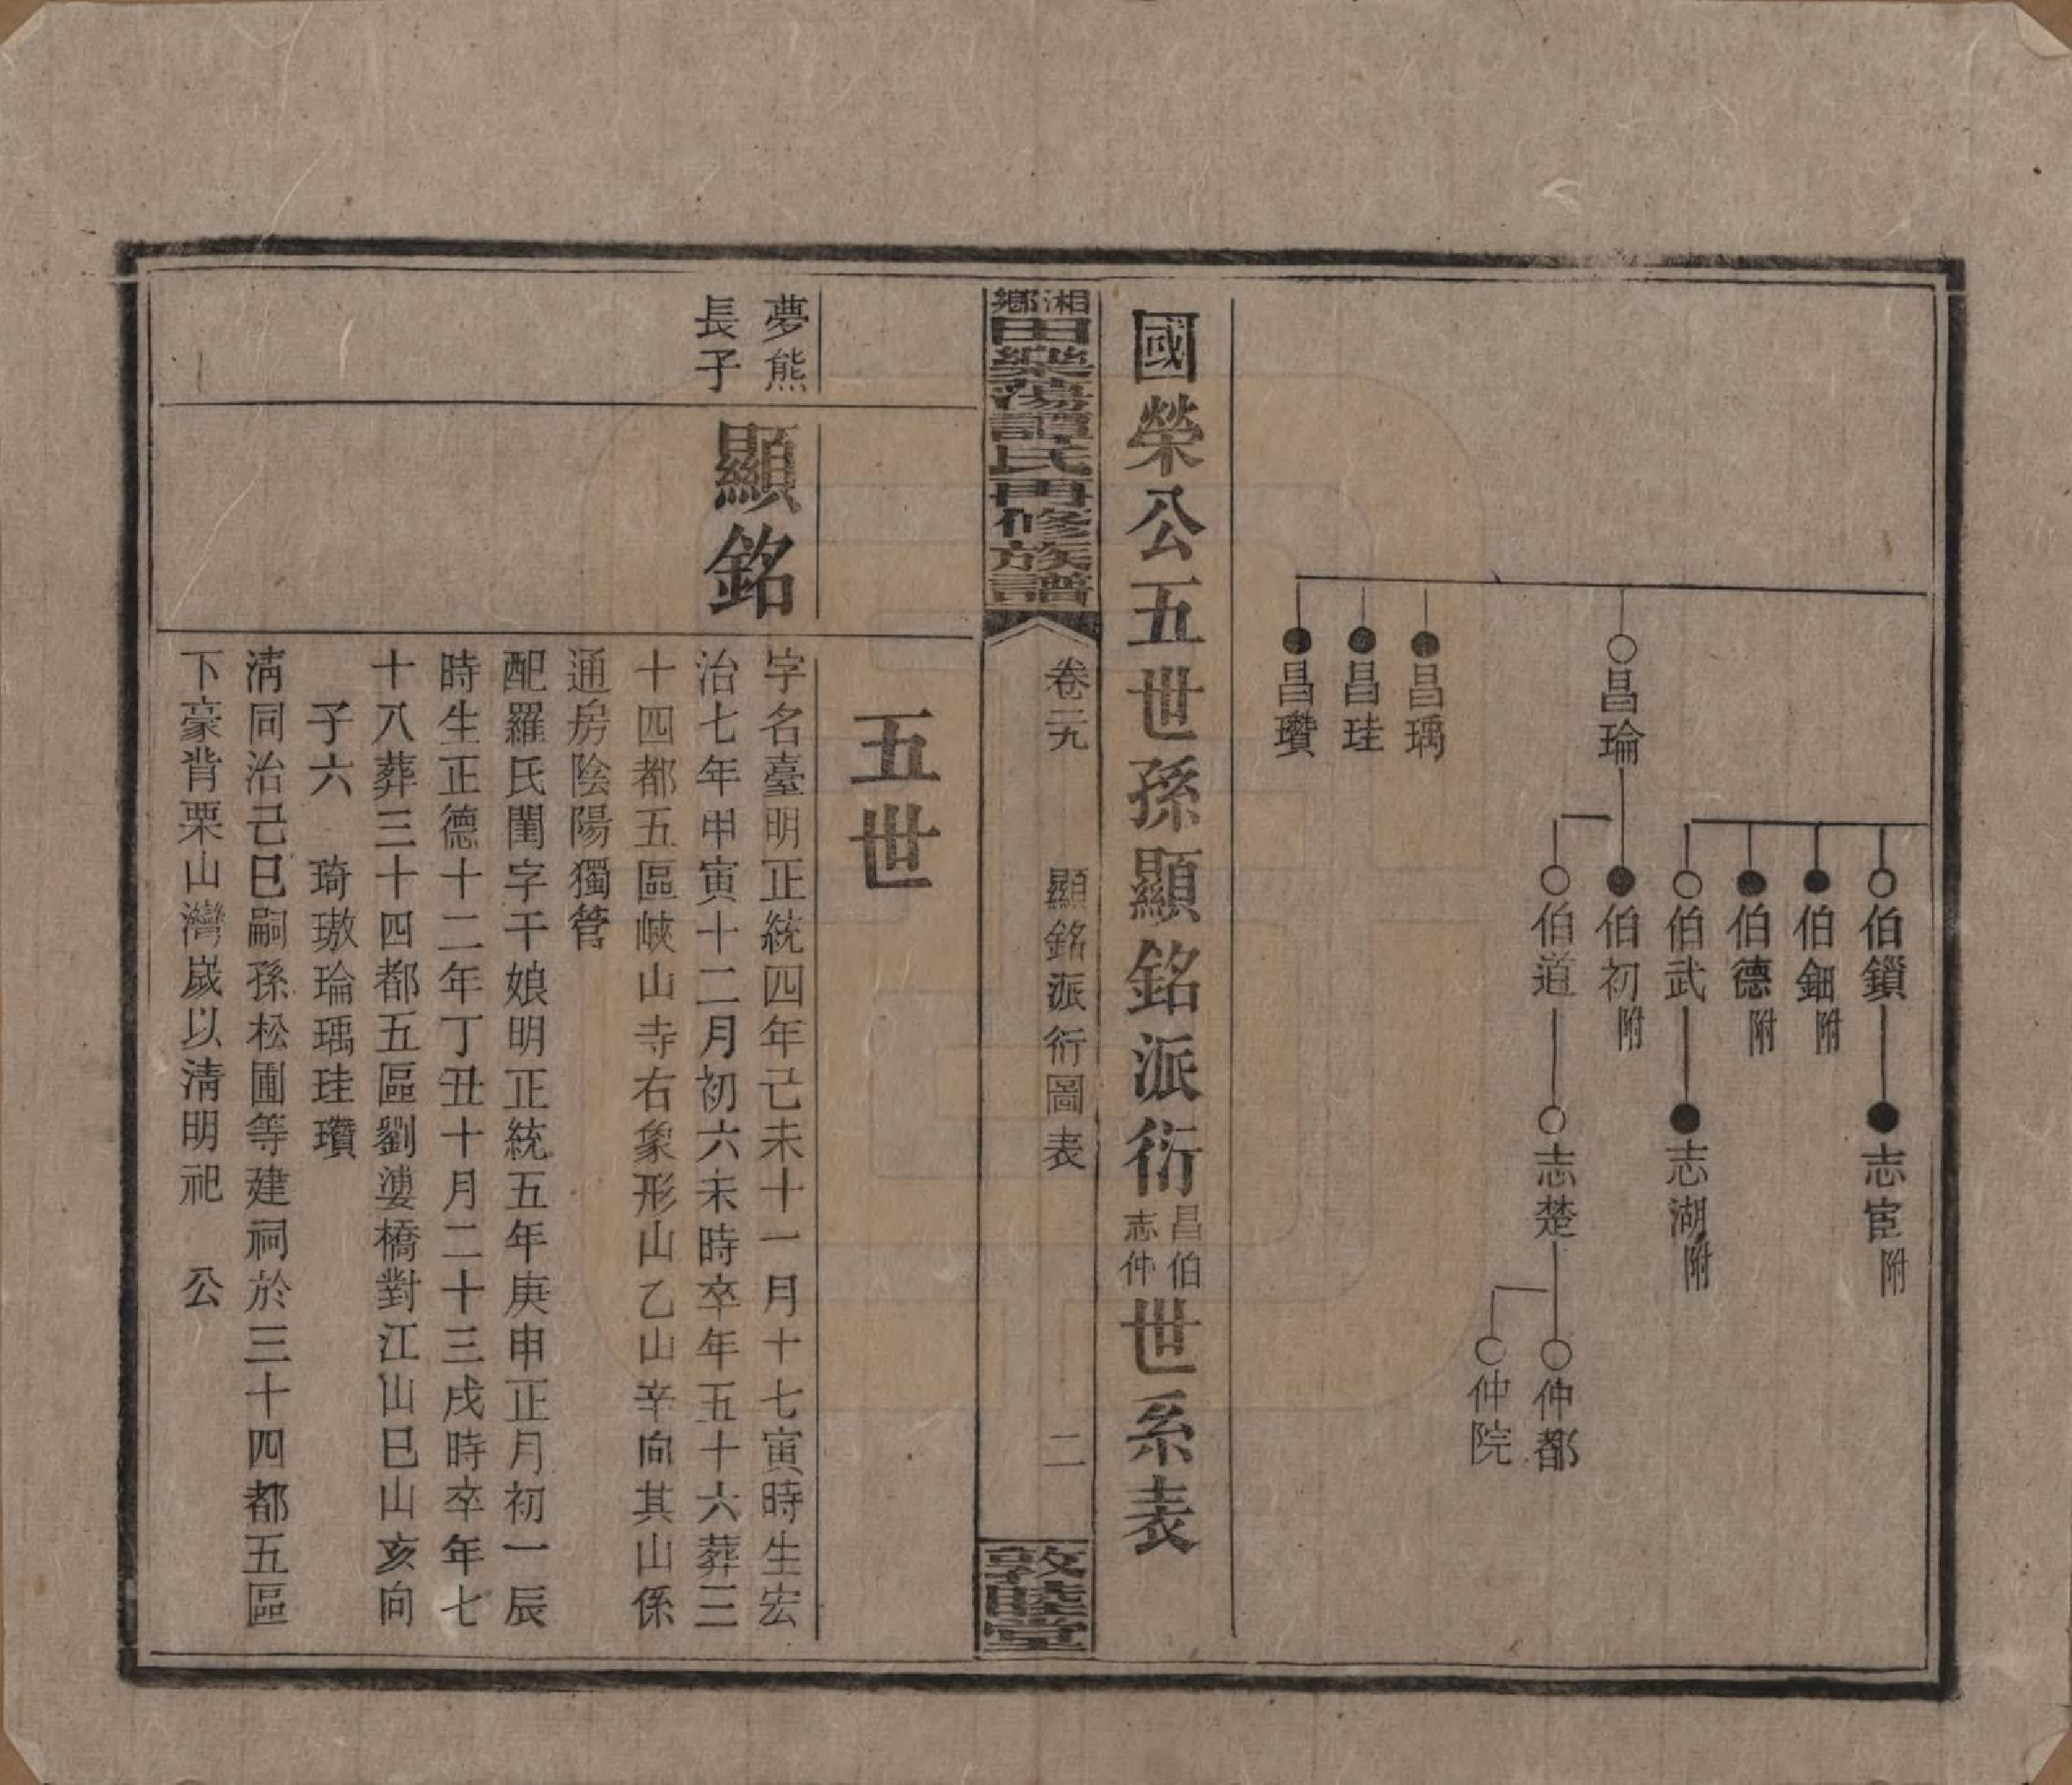 昌瑜
昌瑀
昌珪
昌瓚
伯鎖
伯鈿附
伯德附
伯武
伯初附
伯道
志宦附
志湖附
志楚
仲都
仲院
國榮公五世孫顯銘派衍昌伯志仲世系表
湘鄉田樂蕩譚氏四修族譜
卷二九
顯銘派衍圖表
二
敦睦堂
五世
夢熊
長子
顯銘
字名臺明正統四年己未十一月十七寅時生宏
治七年甲寅十二月初六未時卒年五十六葬三
十四都五區峽山寺右象形山乙山辛向其山係
通房陰陽獨管
配羅氏閨字干娘明正統五年庚申正月初一辰
時生正德十二年丁丑十月二十三戌時卒年七
十八葬三十四都五區劉婆橋對江山巳山亥向
子六 琦璈瑜瑀珪瓚
淸同治己巳嗣孫松圃等建祠於三十四都五區
下豪背栗山灣嵗以淸明祀 公